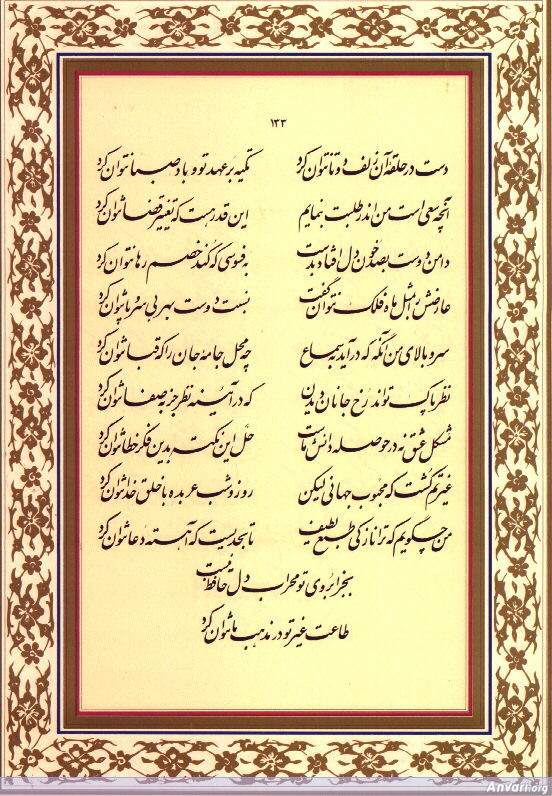 ۱۳۳
دست در حلقهٔ آن زلف دوتا نتوان کرد تکیه بر عهد تو و باد صبا نتوان کرد
آنچه سعی است من اندر طلبت بنمایم این قدر هست که تغییر قضا نتوان کرد
دامن دوست بصد خون دل افتاد بدست به فسوسی که کند خصم رها نتوان کرد
عارضش را بمثل ماه فلک نتوان گفت نسبت دوست بهر بی سر و پا نتوان کرد
سرو بالای من آنگه که درآید بسماع چه محل جامهٔ جان را که قبا نتوان کرد
نظر پاک تواند رخ جانان دیدن که در آئینه نظر جز به صفا نتوان کرد
مشکل عشق نه در حوصله دانش ماست حل این نکته بدین فکر خطا نتوان کرد
غیرتم کشت که محبوب جهانی لیکن روز و شب عربده با خلق خدا نتوان کرد
من چگویم که ترا نازکی طبع لطیف تا بحدیست که آهسته دعا نتوان کرد
بجز ابروی تو محراب دل حافظ نیست
طاعت غیر تو در مذهب ما نتوان کرد
Anvari.org